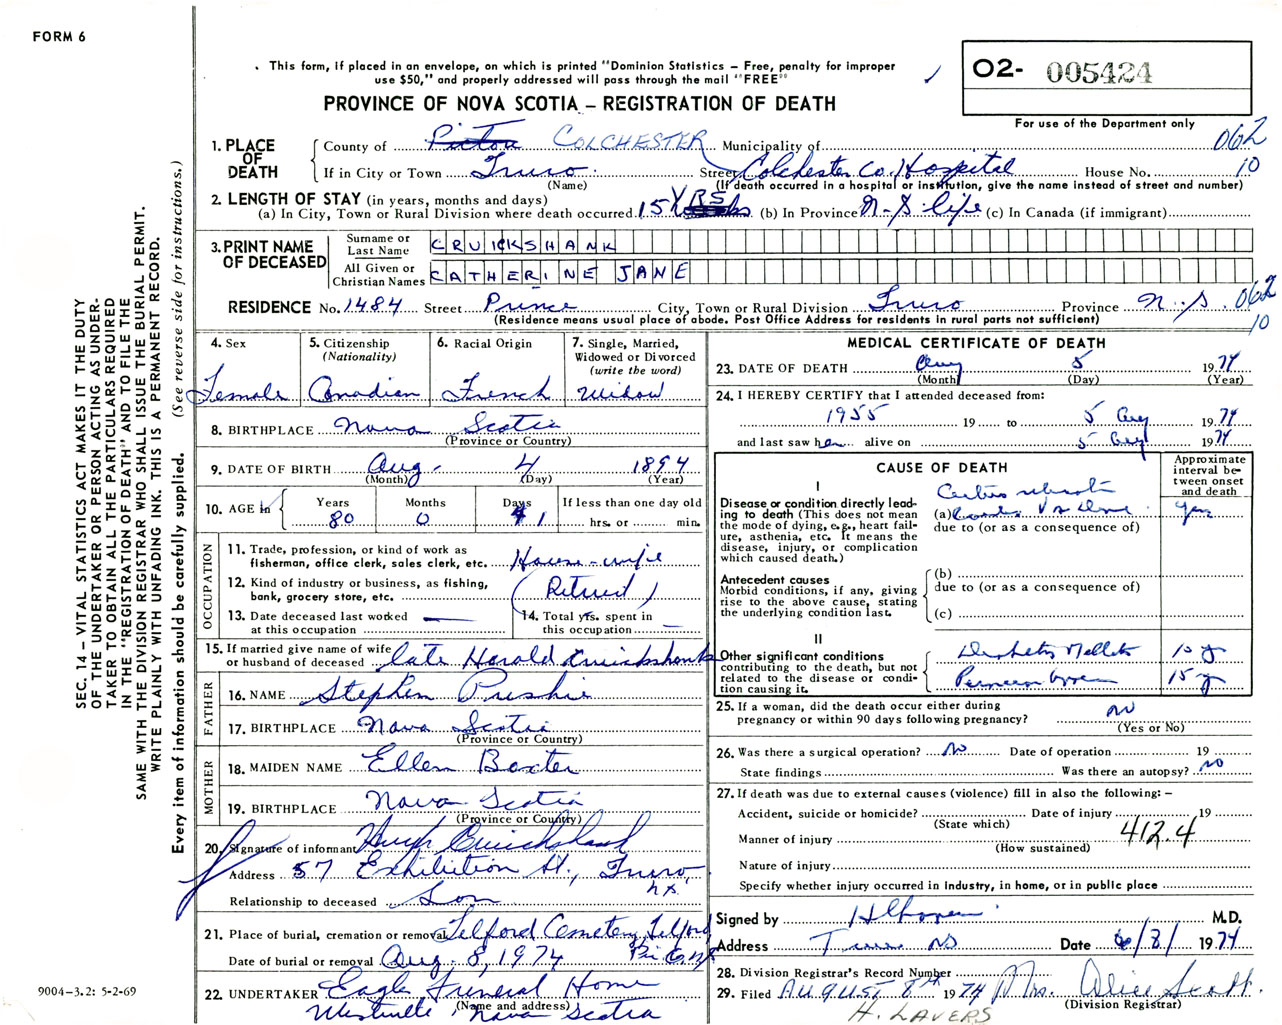 FORM 6
. This form, if placed in an envelope, on which is printed "Dominion Statistics – Free, penalty for improper
use $50," and properly addressed will pass through the mail "FREE"
O2- 005424
For use of the Department only
PROVINCE OF NOVA SCOTIA – REGISTRATION OF DEATH
1. PLACE OF DEATH
County of Pictou COLCHESTER Municipality of 062
If in City or Town Truro Street Colchester Co. Hospital House No. 10
(Name) (If death occurred in a hospital or institution, give the name instead of street and number)
2. LENGTH OF STAY (in years, months and days)
(a) In City, Town or Rural Division where death occurred 15 YRS (b) In Province N-S life (c) In Canada (if immigrant)
3. PRINT NAME OF DECEASED
Surname or Last Name CRUICKSHANK
All Given or Christian Names CATHERINE JANE
RESIDENCE No. 1484 Street Prince City, Town or Rural Division Truro Province N.S. 062
(Residence means usual place of abode. Post Office Address for residents in rural parts not sufficient) 10
4. Sex
Female
5. Citizenship
(Nationality)
Canadian
6. Racial Origin
French
7. Single, Married,
Widowed or Divorced
(write the word)
Widow
8. BIRTHPLACE Nova Scotia
(Province or Country)
9. DATE OF BIRTH Aug. 4 1894
(Month) (Day) (Year)
10. AGE in
Years Months Days If less than one day old
80 0 1 hrs. or min.
OCCUPATION
11. Trade, profession, or kind of work as
fisherman, office clerk, sales clerk, etc. House-wife
12. Kind of industry or business, as fishing,
bank, grocery store, etc. (Retired)
13. Date deceased last worked
at this occupation
14. Total yrs. spent in
this occupation
15. If married give name of wife
or husband of deceased late Harold Cruickshank
FATHER
16. NAME Stephen Pushie
17. BIRTHPLACE Nova Scotia
(Province or Country)
MOTHER
18. MAIDEN NAME Ellen Baxter
19. BIRTHPLACE Nova Scotia
(Province or Country)
20. Signature of informant Hugh Cruickshank
Address 57 Exhibition St., Truro, N.S.
Relationship to deceased Son
21. Place of burial, cremation or removal Telford Cemetery, Telford
Date of burial or removal Aug. 8, 1974 Pic. Co. N.S.
22. UNDERTAKER Eagle Funeral Home
(Name and address)
Westville, Nova Scotia
MEDICAL CERTIFICATE OF DEATH
23. DATE OF DEATH Aug 5 1974
(Month) (Day) (Year)
24. I HEREBY CERTIFY that I attended deceased from:
1955 19 to 5 Aug 1974
and last saw her alive on 5 Aug 1974
CAUSE OF DEATH
Approximate
interval be-
tween onset
and death
I
Disease or condition directly lead-
ing to death (This does not mean
the mode of dying, e.g., heart fail-
ure, asthenia, etc. It means the
disease, injury, or complication
which caused death.)
(a)
due to (or as a consequence of)
Antecedent causes
Morbid conditions, if any, giving
rise to the above cause, stating
the underlying condition last.
(b)
due to (or as a consequence of)
(c)
II
Other significant conditions
contributing to the death, but not
related to the disease or condi-
tion causing it.
Diabetes Mellitus 10 y
15 y
25. If a woman, did the death occur either during
pregnancy or within 90 days following pregnancy? no
(Yes or No)
26. Was there a surgical operation? No Date of operation 19
State findings Was there an autopsy? no
27. If death was due to external causes (violence) fill in also the following: –
Accident, suicide or homicide? Date of injury 19
(State which)
Manner of injury 412.4
(How sustained)
Nature of injury
Specify whether injury occurred in industry, in home, or in public place
Signed by M.D.
Address Truro NS Date 6/8/ 1974
28. Division Registrar's Record Number
29. Filed AUGUST 8th 1974 Mrs. Alice Scott.
(Division Registrar)
H. LAVERS
SEC. 14 – VITAL STATISTICS ACT MAKES IT THE DUTY
OF THE UNDERTAKER OR PERSON ACTING AS UNDER-
TAKER TO OBTAIN ALL THE PARTICULARS REQUIRED
IN THE "REGISTRATION OF DEATH" AND TO FILE THE
SAME WITH THE DIVISION REGISTRAR WHO SHALL ISSUE THE BURIAL PERMIT.
WRITE PLAINLY WITH UNFADING INK. THIS IS A PERMANENT RECORD.
Every item of information should be carefully supplied. (See reverse side for instructions.)
9004-3.2: 5-2-69